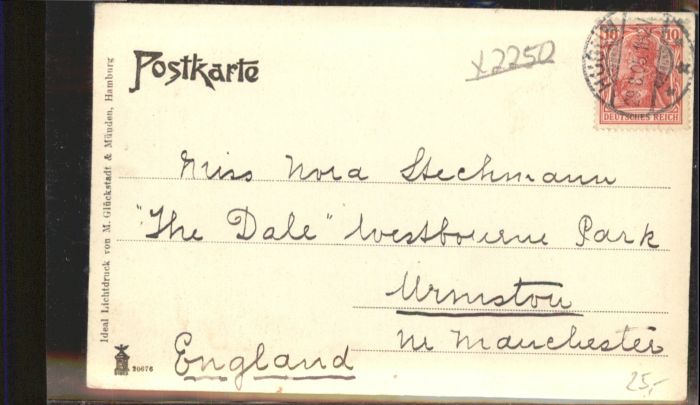 Postkarte
x2250
10 10
DEUTSCHES REICH
Miss Nora Stechmann
"The Dale" Westbourne Park
Urmston
nr Manchester
England
Ideal Lichtdruck von M. Glückstadt & Münden, Hamburg
20676
25,-